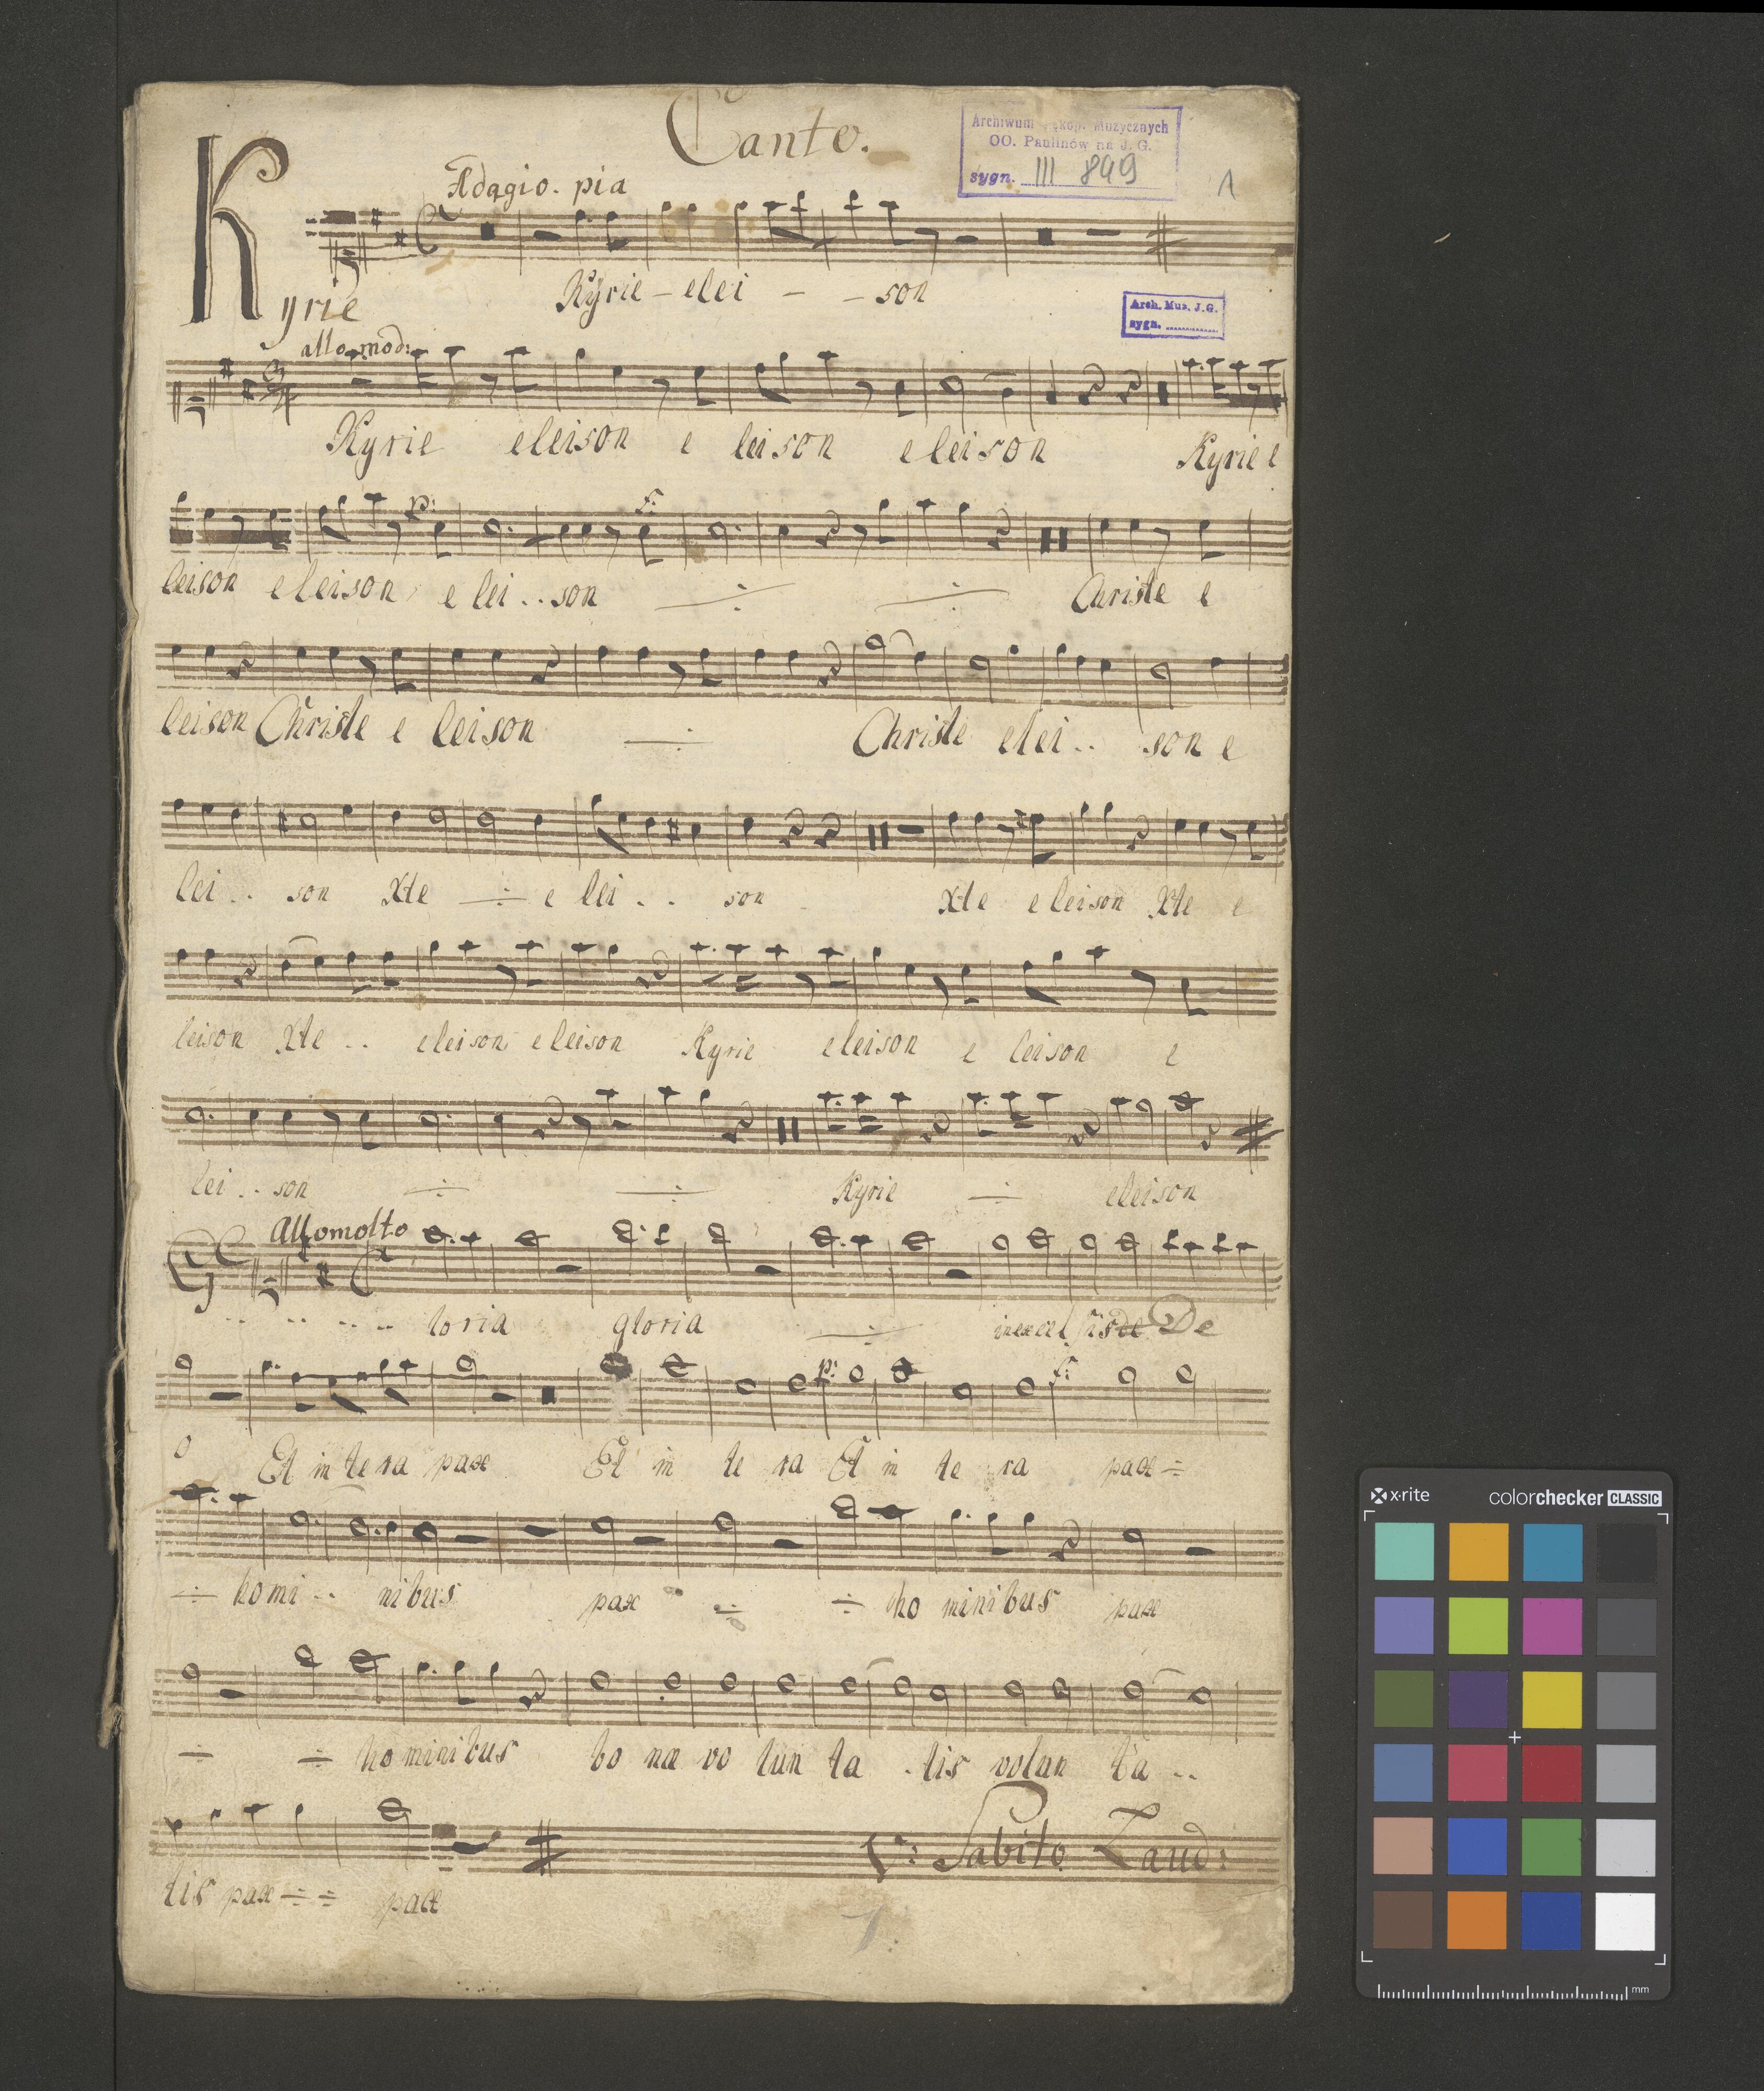 Canto.
Archiwum Rękop. Muzycznych
OO. Paulinów na J. G.
sygn. III 849
1
Adagio. pia
Kyrie Kyrie - elei - - son
Arch. Mus. J. G.
sygn. ..............
allo mod:
Kyrie eleison e leison eleison Kyrie e
p: f:
leison eleison e lei .. son Christe e
leison Christe e leison Christe elei .. son e
lei .. son Xte e lei .. son Xte eleison Xte e
leison Xte .. eleison eleison Kyrie eleison e leison e
lei .. son Kyrie eleison
Allo molto
G .. .. .. .. loria gloria in excelsis De
p: f:
o Et in tera pax Et in te ra Et in te ra pax
homi .. nibus pax ho minibus pax
ho minibus bo næ vo lun ta . tis volun ta ..
V: Subito Laud:
tis pax pax
x·rite
colorchecker CLASSIC
mm